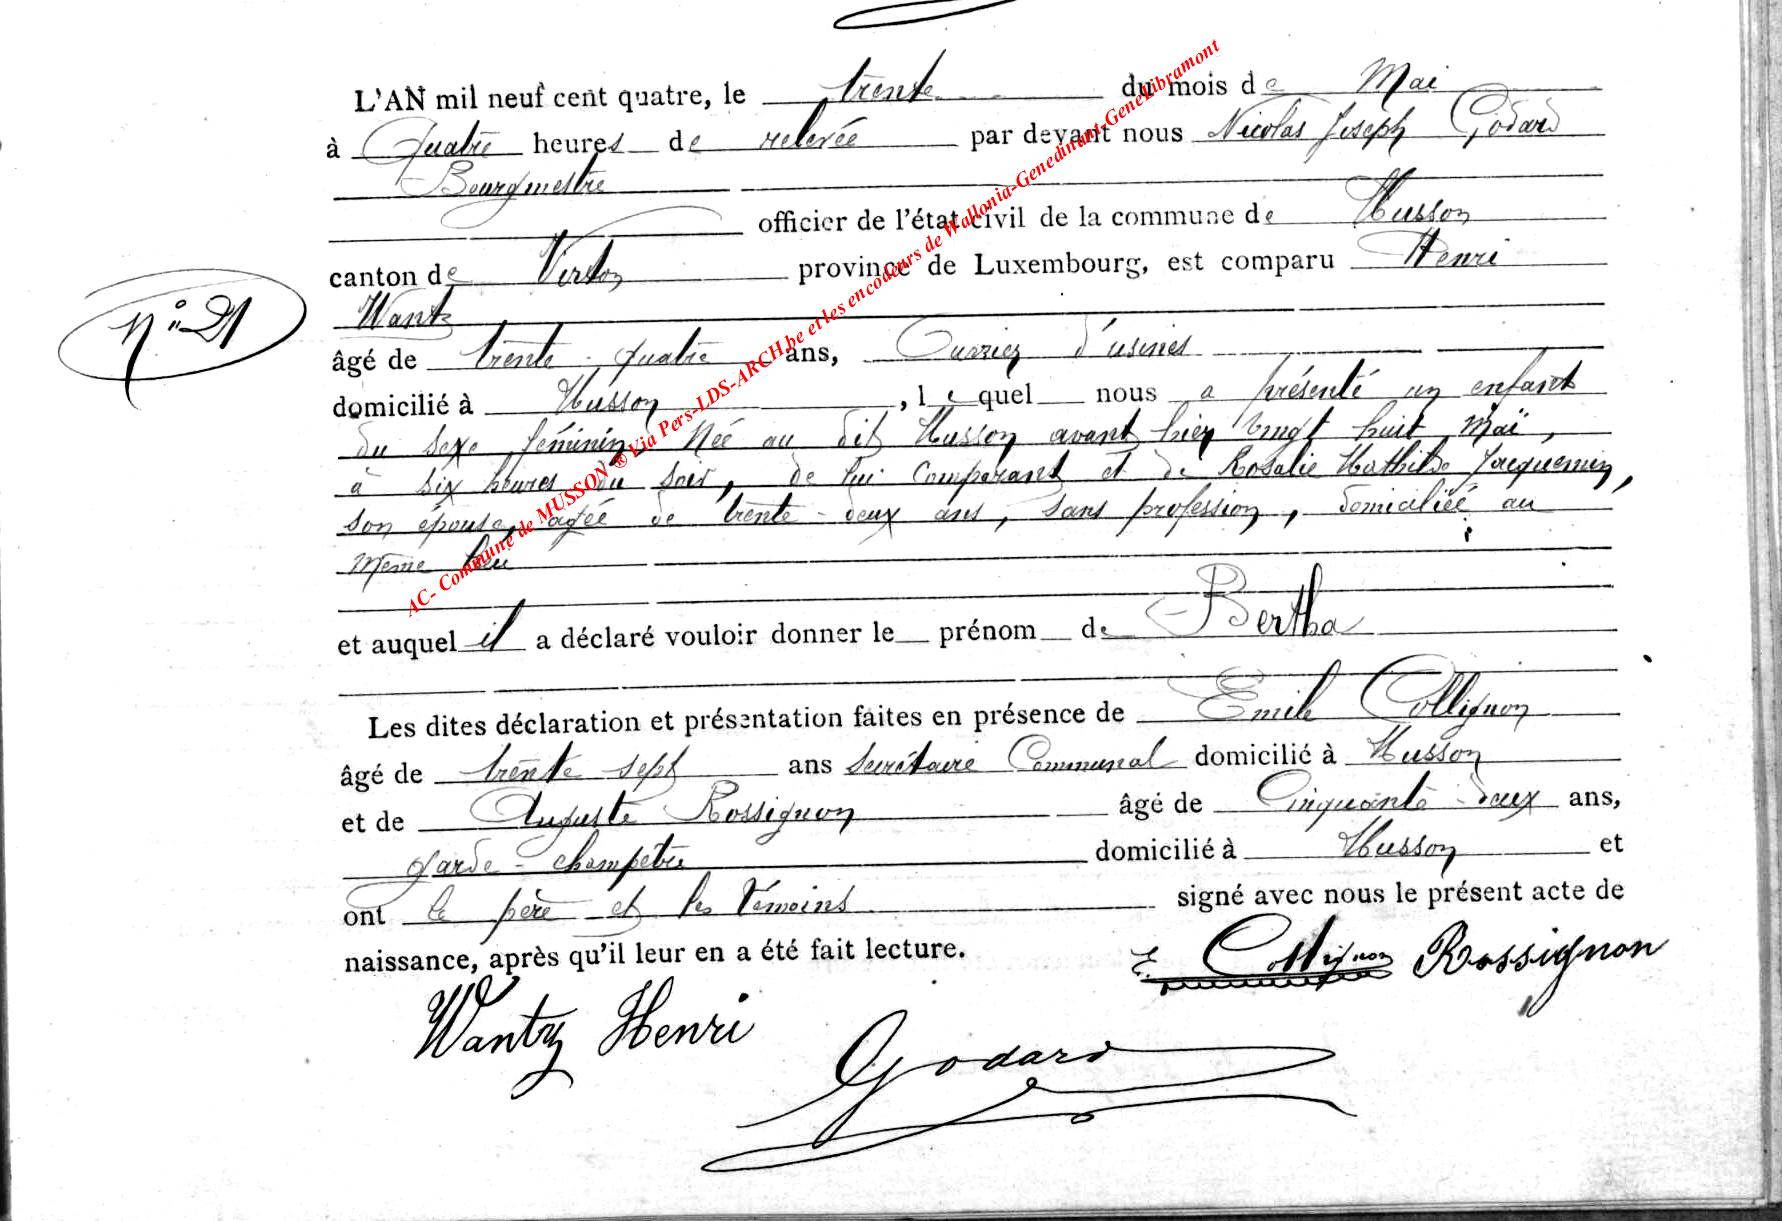 L'AN mil neuf cent quatre, le trente du mois de Mai
à Quatre heures de relevée par devant nous Nicolas Joseph Godard
Bourgmestre
officier de l'état civil de la commune de Musson
canton de Virton province de Luxembourg, est comparu Henri
Wantz
N° 21
âgé de trente-quatre ans, Ouvrier d'usines
domicilié à Musson, lequel nous a présenté un enfant
du sexe féminin, Née au dit Musson avant hier vingt huit Maï,
à six heures du soir, de lui comparant et de Rosalie Mathilde Jacquemin,
son épouse, agée de trente-deux ans, sans profession, domiciliée au
même lieu
et auquel il a déclaré vouloir donner le prénom de Bertha
Les dites déclaration et présentation faites en présence de Emile Collignon
âgé de trente sept ans secrétaire Communal domicilié à Musson
et de Auguste Rossignon âgé de Cinquante-deux ans,
garde-champêtre domicilié à Musson et
ont le père et les témoins signé avec nous le présent acte de
naissance, après qu'il leur en a été fait lecture.
E. Collignon Rossignon
Wantz Henri
Godard
AC- Commune de MUSSON ® Via Pers-LDS-ARCH.be et les encodeurs de Wallonia-Genedinant-GeneLibramont